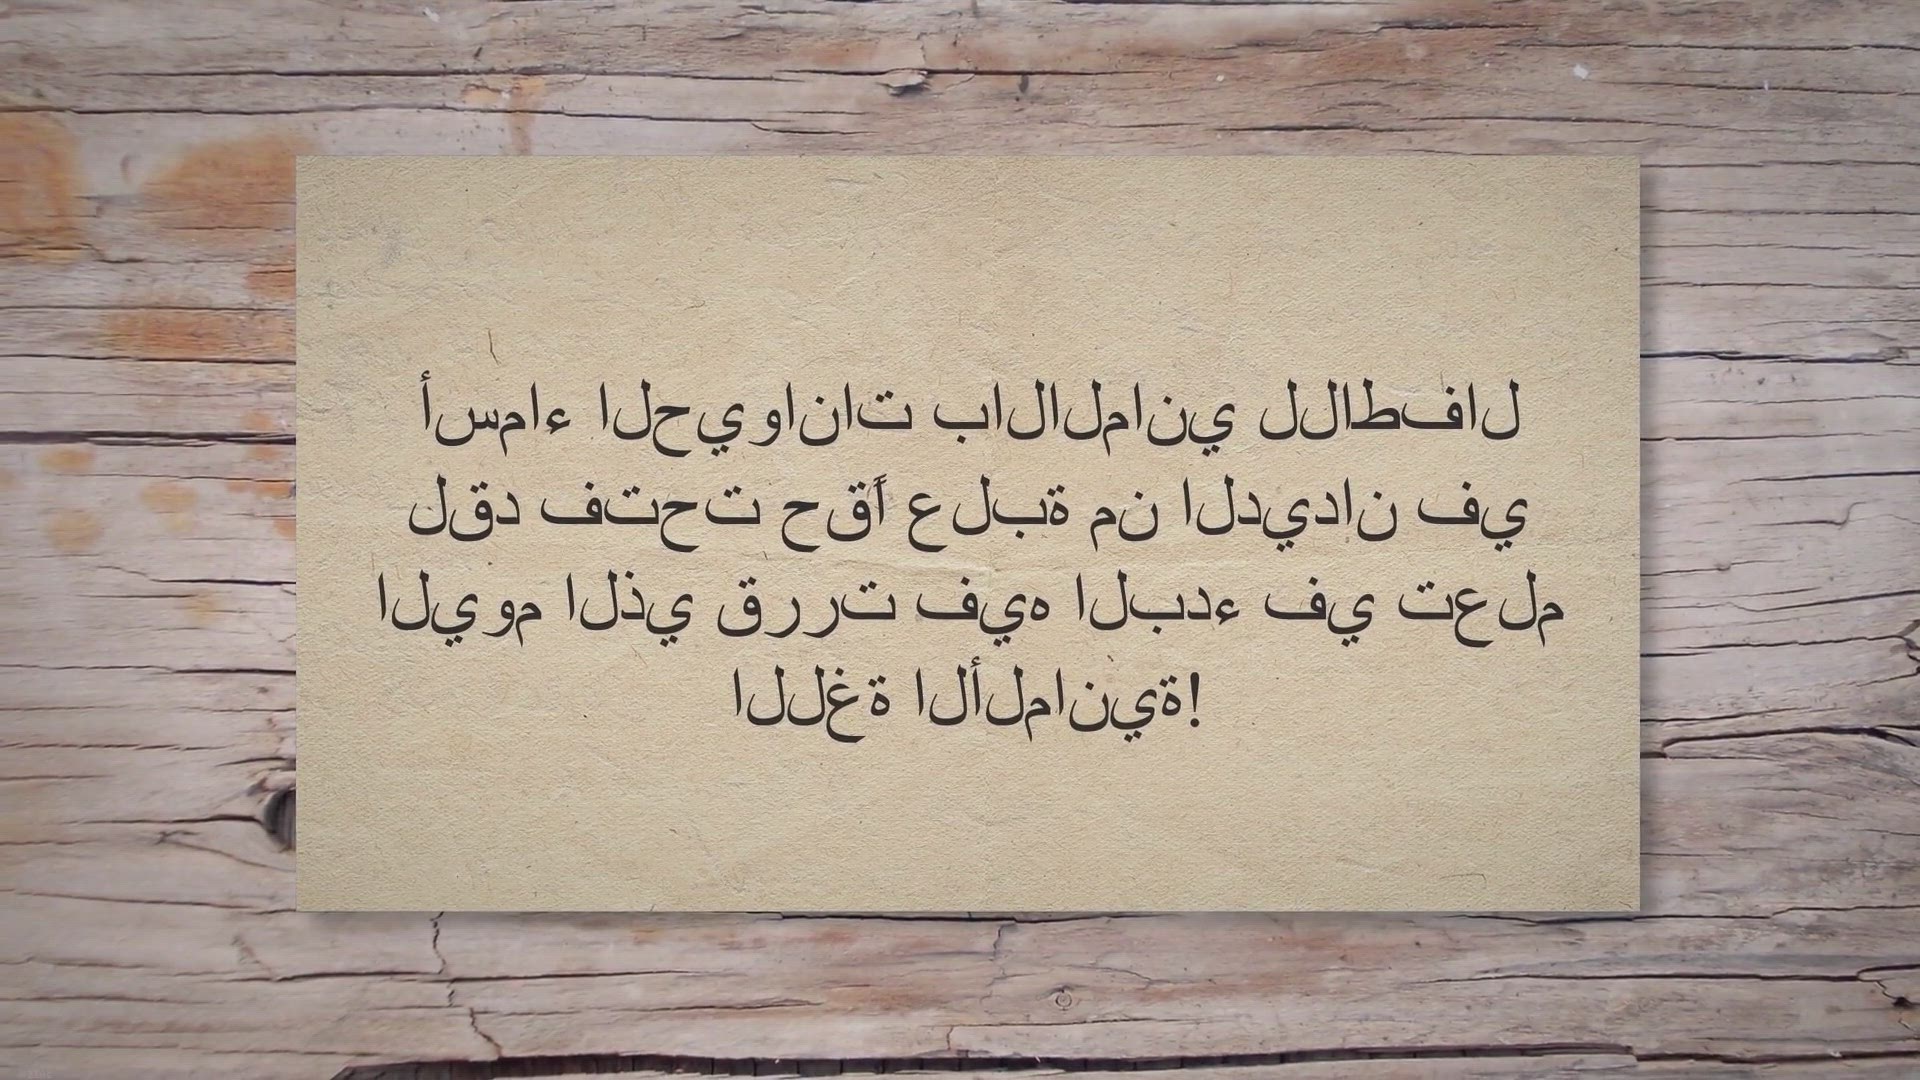 أسماء الحيوانات بالالماني للاطفال
لقد فتحت حقًا علبة من الديدان في
اليوم الذي قررت فيه البدء في تعلم
اللغة الألمانية!